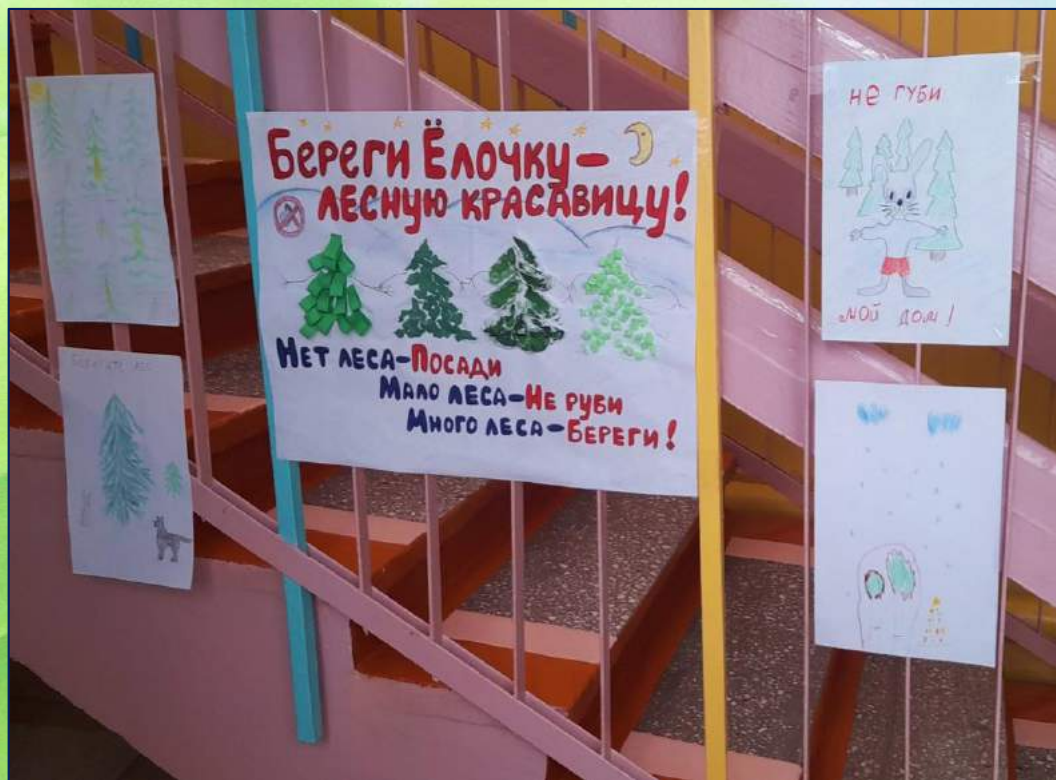 Береги Ёлочку –
лесную красавицу!
Нет леса – Посади
Мало леса – Не руби
Много леса – Береги!
не губи
мой дом!
Берегите лес